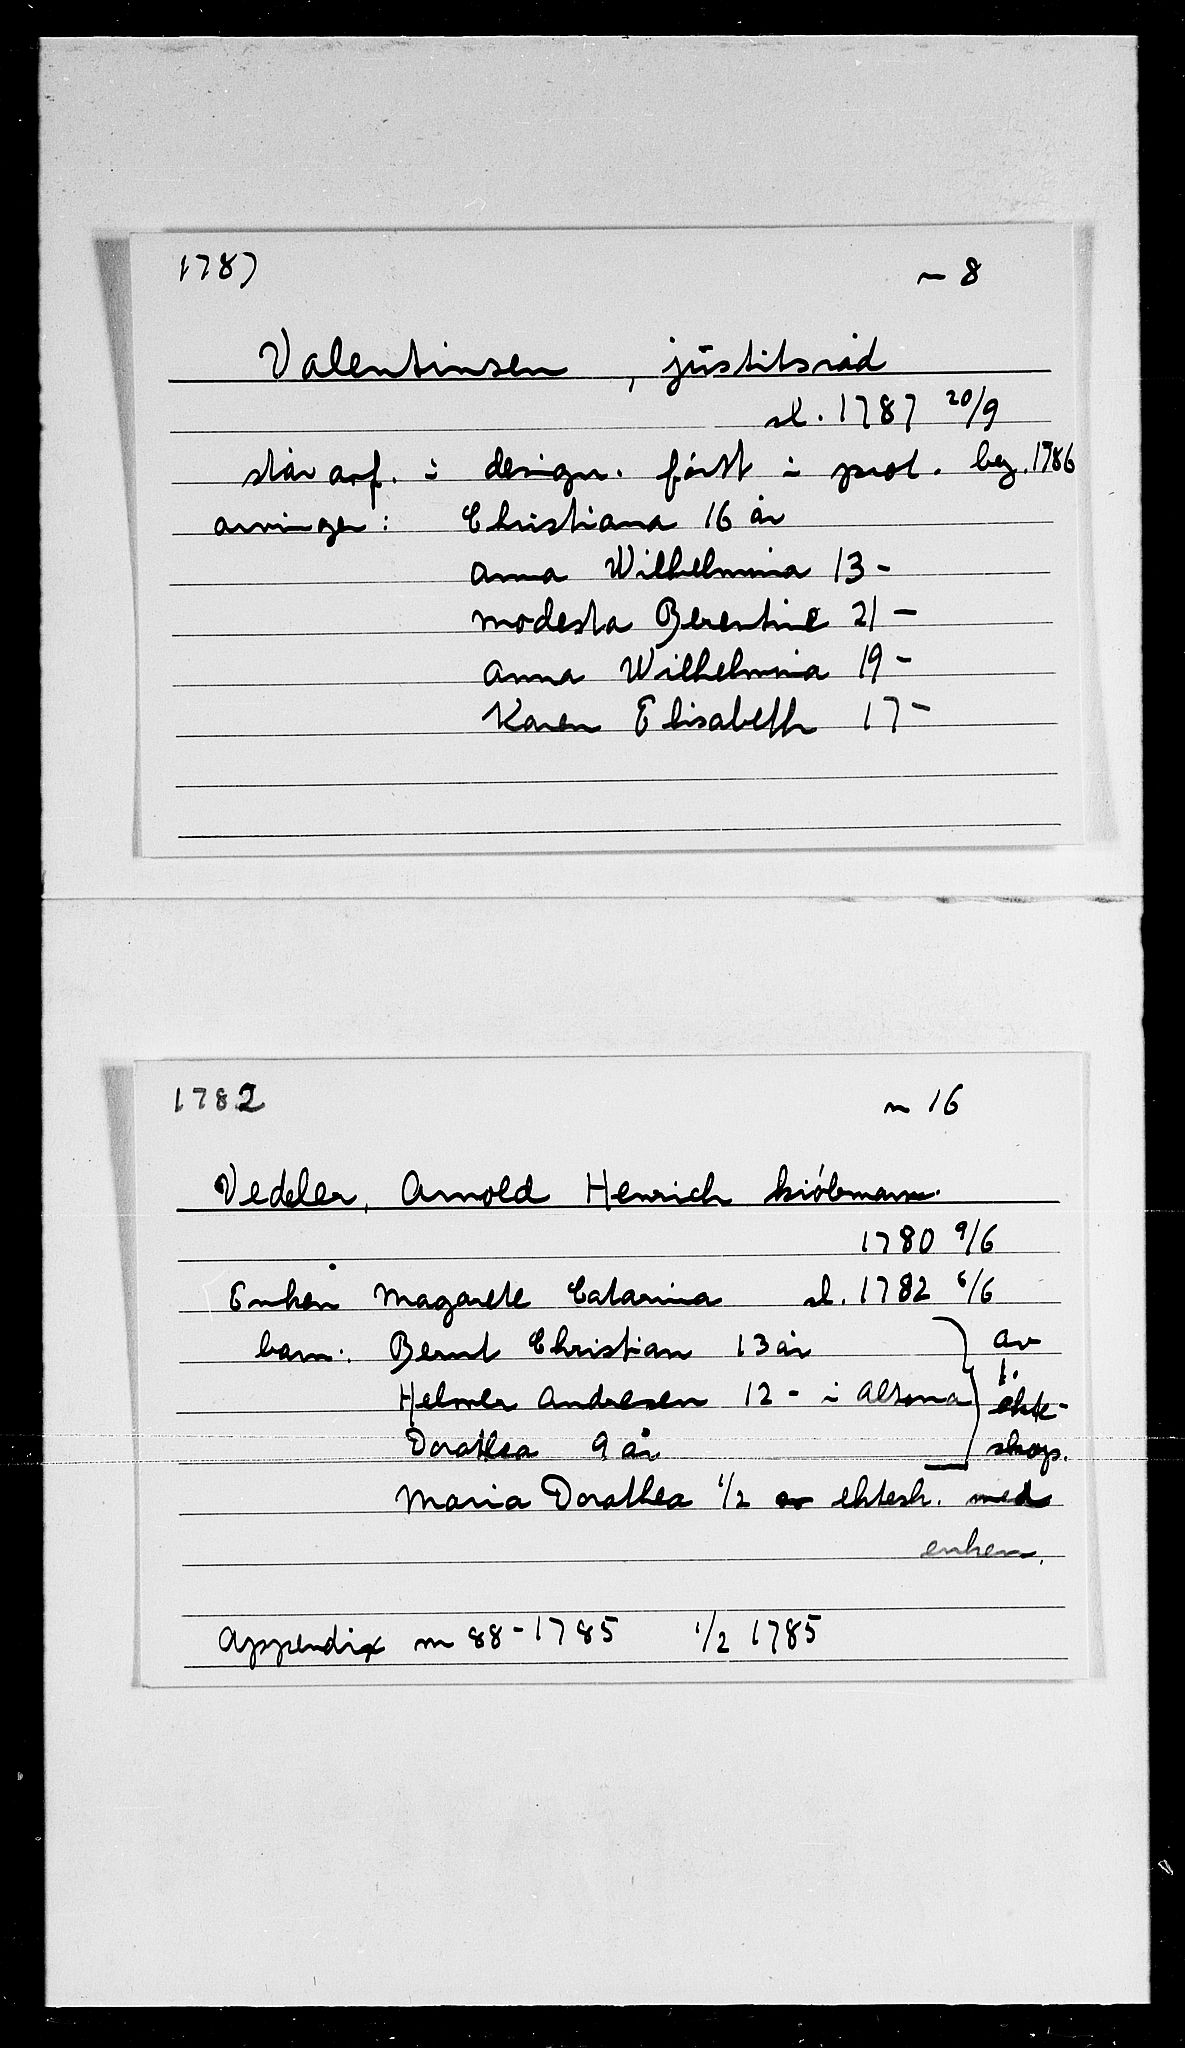 1787 n 8
Valentinsen , justitsråd
sl. 1787 20/9
står anf. i design. först i prot. beg. 1786
arvinger: Christiana 16 år
Anna Wilhelmina 13 -
Modesta Berentine 21 -
Anna Wilhelmina 19 -
Karen Elisabeth 17 -
1782 n 16
Vedeler, Arnold Henrich kiöbmann.
1780 9/6
Enken Magarete Catarina sl. 1782 6/6
barn: Bernt Christian 13 år } av
Helmer Andresen 12 - i Altona 1. ekte-
Dorathea 9 år skap.
Maria Dorathea 1/2 av ektesk. med
enken.
Appendix n 88 - 1785 1/2 1785